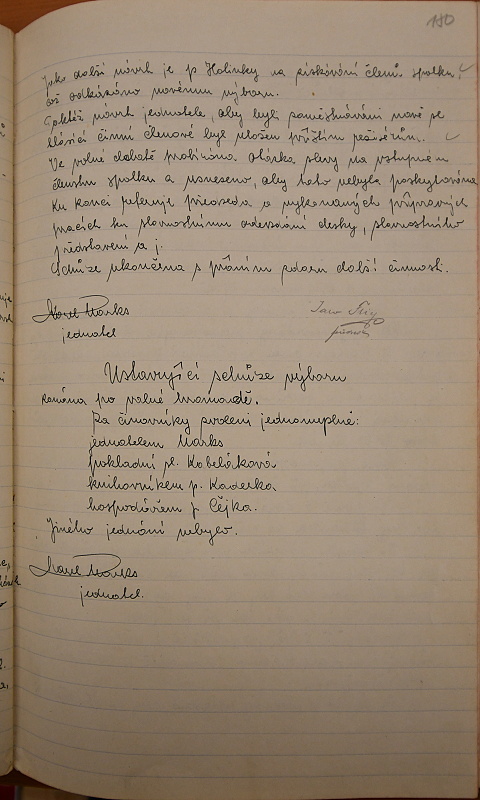 180
Jako další návrh je p. Holinky na získávání členů spolku,
což odkázáno novému výboru.
Taktéž návrh jednatele, aby byli zaměstnáváni nově se
hlásící činní členové byl uložen příštím režisérům.
Ve volné debatě probírána otázka slevy na vstupném
členstvu spolku a usneseno, aby tato nebyla poskytována
Ku konci referuje předseda o vykonaných přípravných
pracích ku slavnostnímu odevzdání desky, slavnostního
představení a j.
Schůze ukončena s přáním zdaru další činnosti.
Karel Marks
jednatel
Ustavující schůze výboru
konána po valné hromadě.
Za činovníky zvoleni jednomyslně:
jednatelem Marks
pokladní sl. Kobeláková
knihovníkem p. Kaderka
hospodářem p. Čejka.
Jiného jednání nebylo.
Karel Marks
jednatel.